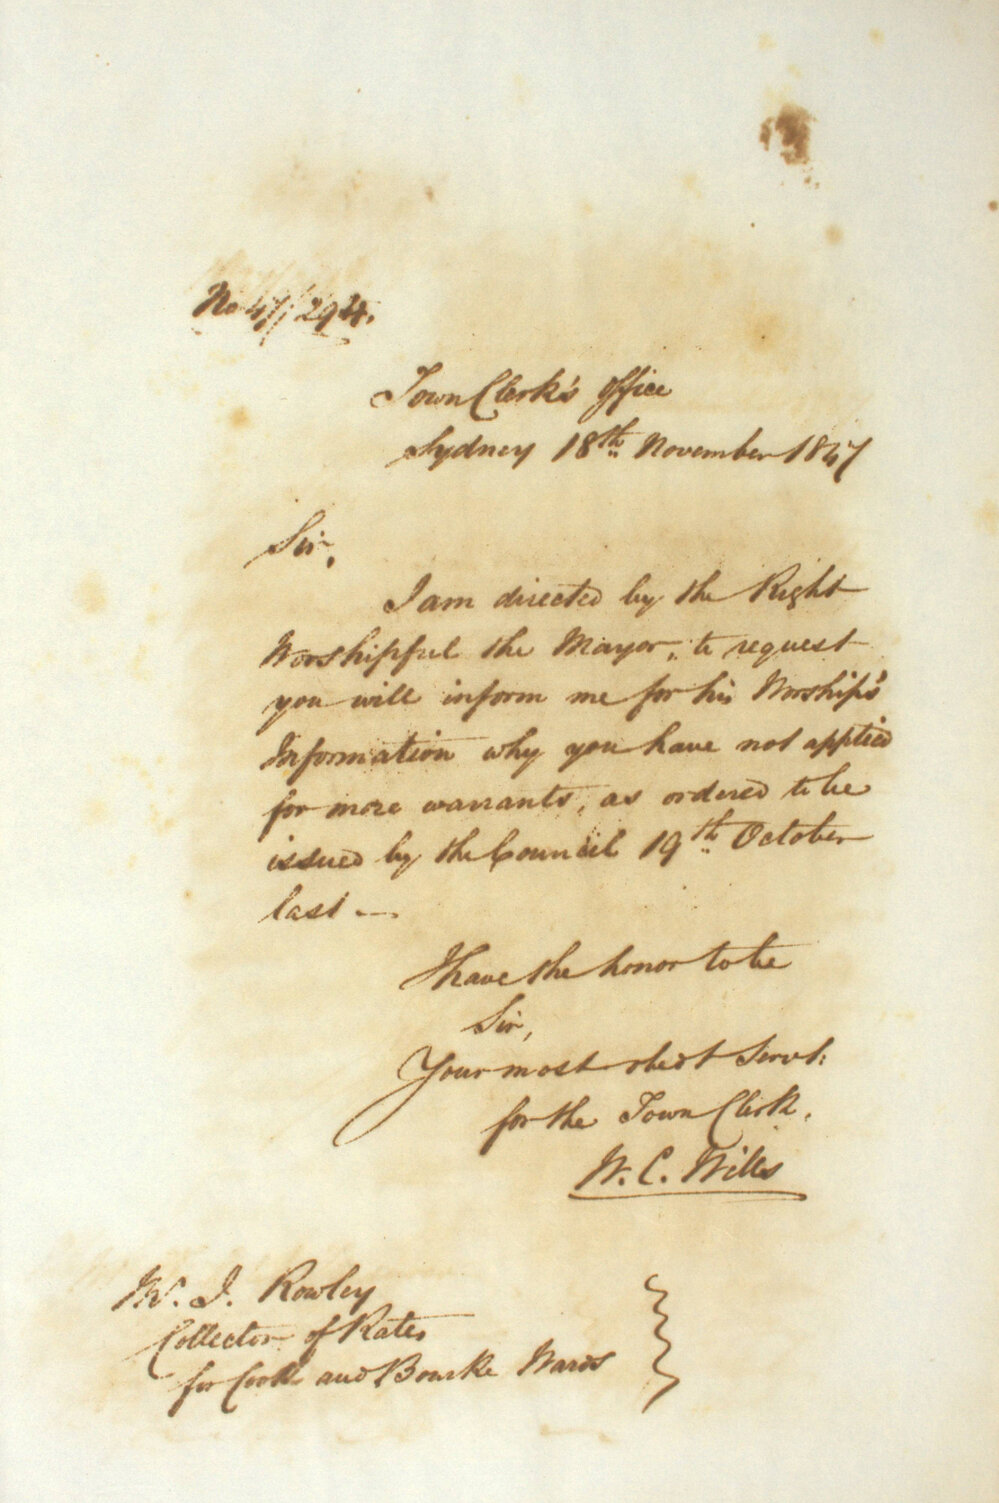 No 47/294.
Town Clerk's Office
Sydney 18th November 1847
Sir,
I am directed by the Right
Worshipful the Mayor, to request
you will inform me for his Worship's
Information why you have not applied
for more warrants, as ordered to be
issued by the Council 19th October
last —
I have the honor to be
Sir,
Your most obedt Servt:
for the Town Clerk.
W. C. Wills
J. Rowley
Collector of Rates
for Cook and Bourke Wards